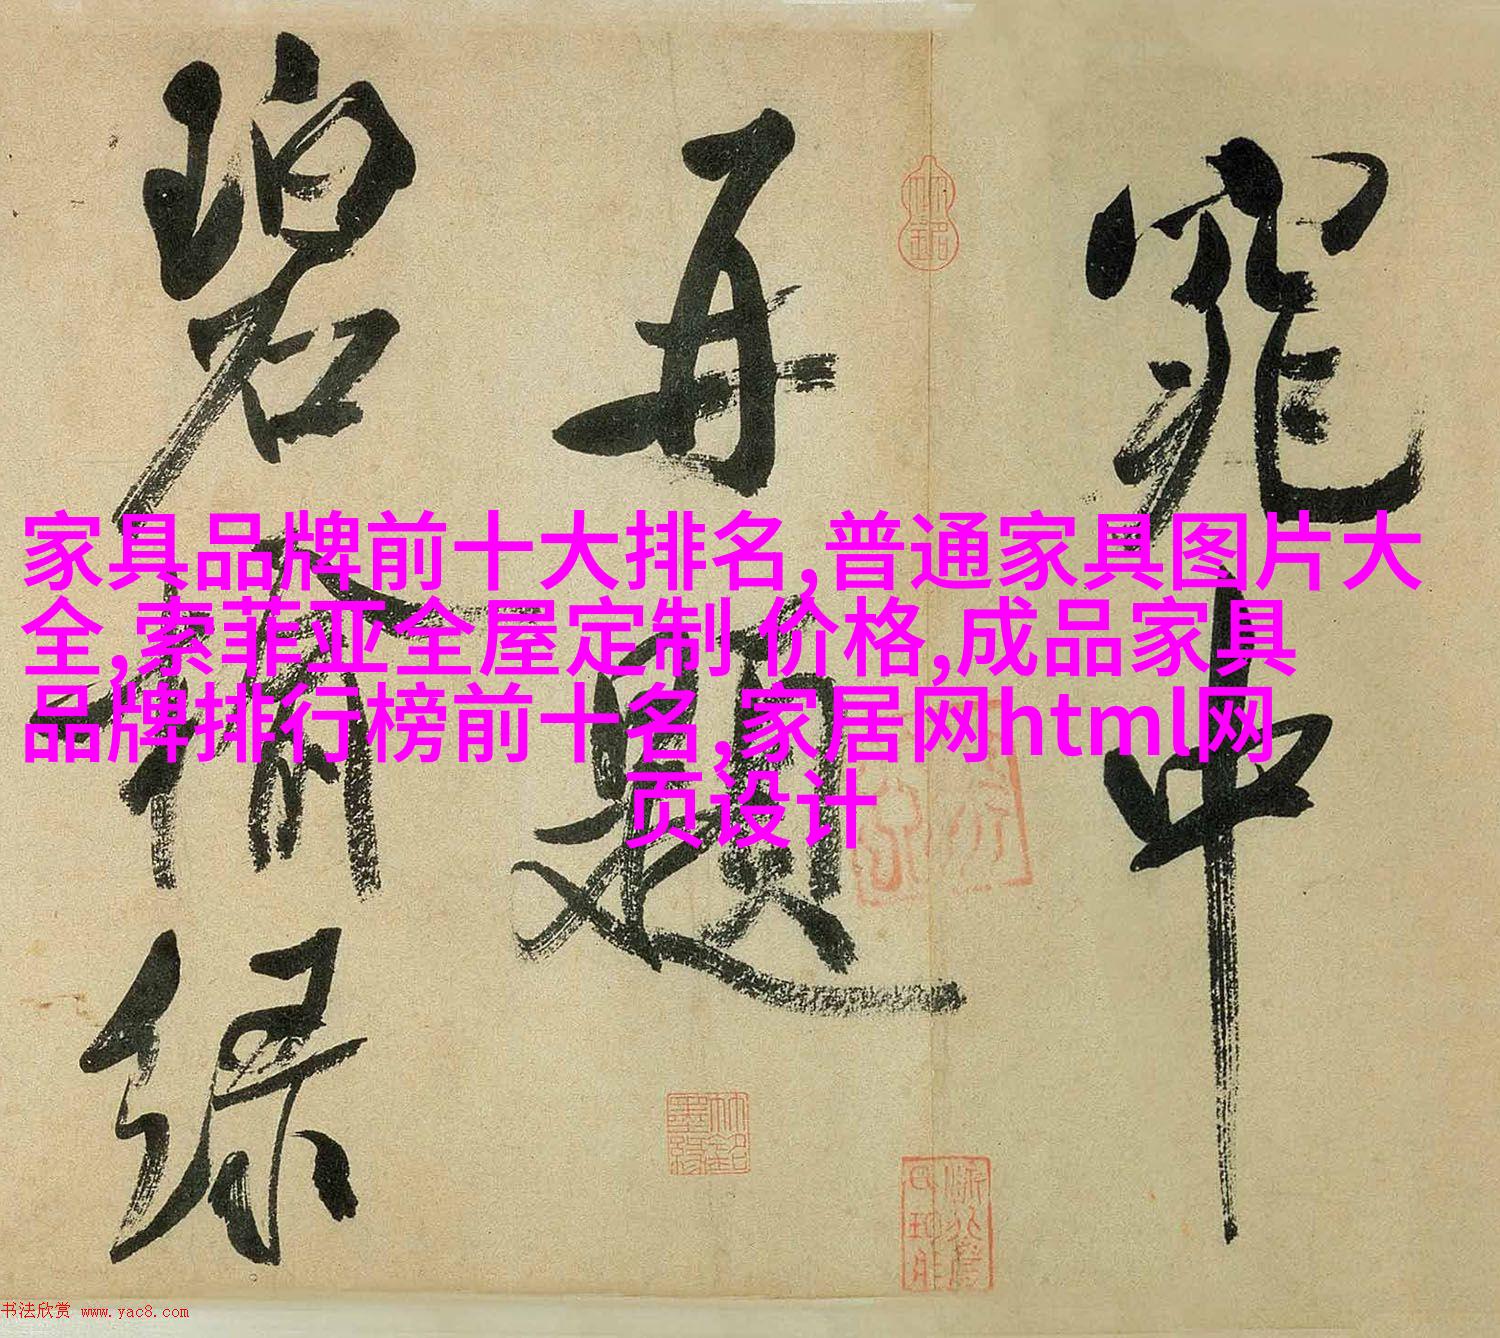 家具品牌前十大排名,普通家具图片大
全,索菲亚全屋定制 价格,成品家具
品牌排行榜前十名,家居网html网
页设计
中
再題
碧 綠
书法欣赏 www.yac8.com